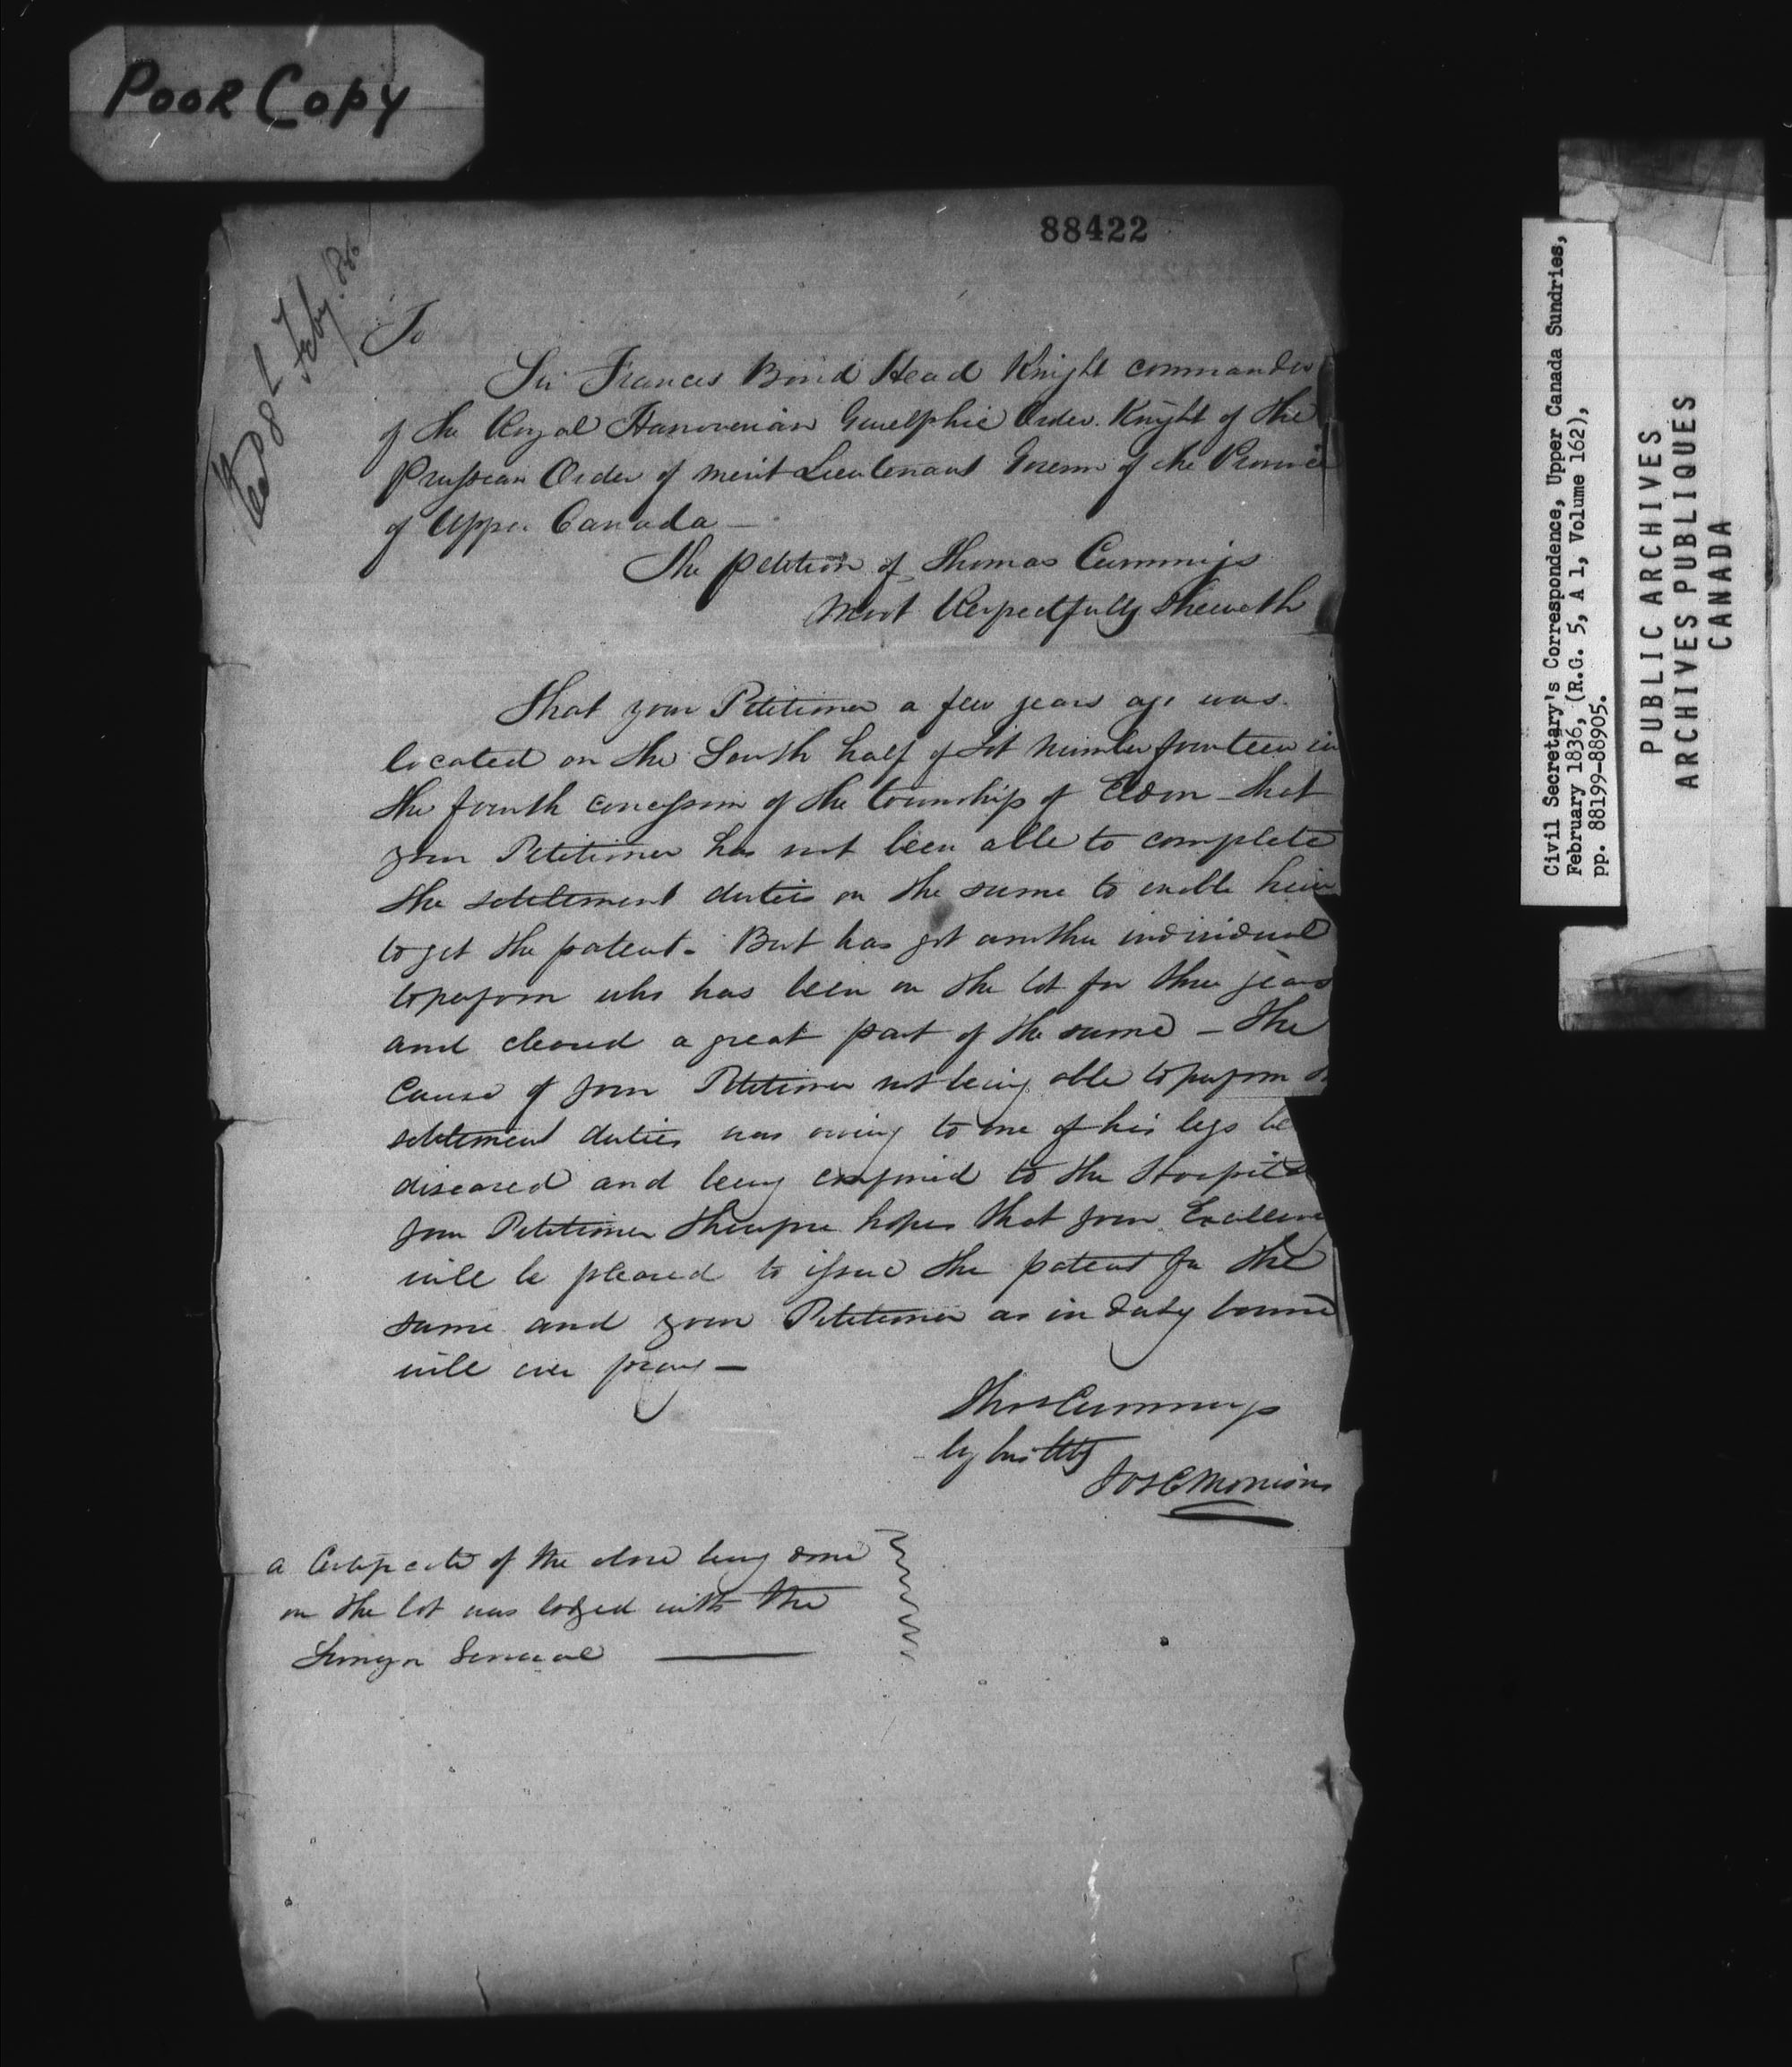 POOR COPY
88422
Recd 8th Feby. 1836
To
Sir Francis Bond Head Knight commander
of the Royal Hanoverian Guelphic Order. Knight of the
Prussian Order of merit Lieutenant Governr of the Province
of Upper Canada —
The petition of Thomas Cummings
Most Respectfully Sheweth
That your Petitioner a few years ago was
located on the South half of Lot Number fourteen in
the fourth concession of the township of Eldon — that
your Petitioner has not been able to complete
the settlement duties on the same to enable him
to get the patent. But has got another individual
to perform who has been on the lot for three years
and cleared a great part of the same — The
Cause of your Petitioner not being able to perform
settlement duties was owing to one of his legs be
diseased and being confined to the Hospital
your Petitioner therefore hopes that your Excellency
will be pleased to issue the patent for the
same and your Petitioner as in duty bound
will ever pray —
Thos Cummings
by his Atty
Jos C Morrison
a Certificate of the above being done
on the lot was lodged with the
Surveyor General
Civil Secretary's Correspondence, Upper Canada Sundries,
February 1836, (R.G. 5, A 1, Volume 162),
pp. 88199-88905.
PUBLIC ARCHIVES
ARCHIVES PUBLIQUES
CANADA